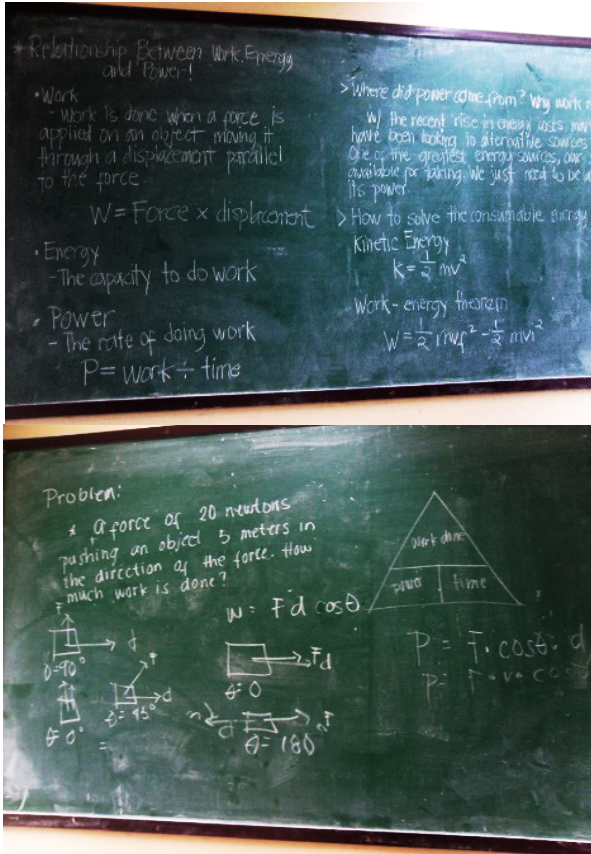 * Relationship Between Work, Energy
and Power!
• Work
- Work is done when a force is
applied on an object moving it
through a displacement parallel
to the force.
W = Force × displacement
• Energy
- The capacity to do work
• Power
- The rate of doing work
P = work ÷ time
> Where did power come from? Why work
W/ the recent rise in energy costs, man
have been looking to alternative sources
One of the greatest energy sources, our
available for taking. We just need to be
its power.
> How to solve the consumable energy
Kinetic Energy
K = 1/2 mv²
Work - energy theorem
W = 1/2 mvf² - 1/2 mvi²
Problem:
* A force of 20 newtons
pushing an object 5 meters in
the direction of the force. How
much work is done?
W = F d cosθ
F
d
θ=90°
θ=0°
F
d
θ=45°
=
F d
θ=0
d
F
θ=180
work done
power time
P = F · cosθ · d
P = F · v · cosθ